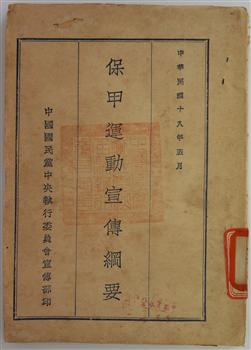 中華民國十八年五月
保甲運動宣傳綱要
中國國民黨中央執行委員會宣傳部印